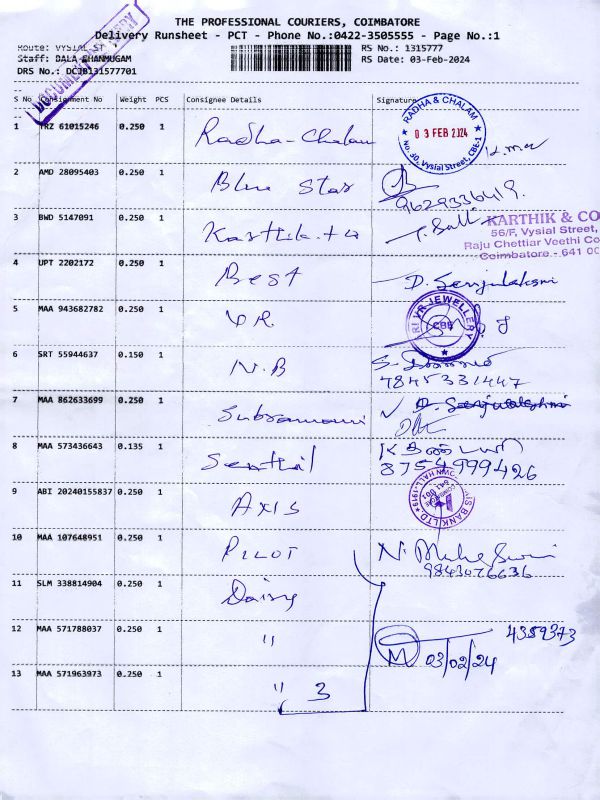 THE PROFESSIONAL COURIERS, COIMBATORE
Delivery Runsheet - PCT - Phone No.:0422-3505555 - Page No.:1
Route: VYSIAL ST RS No.: 1315777
Staff: DALA SHANMUGAM RS Date: 03-Feb-2024
DRS No.: DCJB131577701
S No Consignment No Weight PCS Consignee Details Signature
RADHA & CHALAM
03 FEB 2024
No. 30, Vysial Street, CBE-1
1 TRZ 61015246 0.250 1 Radha-Chalam
2 AMD 28095403 0.250 1 Blue Star
9629336419.
3 BWD 5147091 0.250 1 Karthik.
KARTHIK & CO
56/F, Vysial Street,
Raju Chettiar Veethi Co
Coimbatore - 641 00
4 UPT 2202172 0.250 1 Best
5 MAA 943682782 0.250 1 VR
VR JEWELLERY
CBE
6 SRT 55944637 0.150 1 N.B
7845331447
7 MAA 862633699 0.250 1
8 MAA 573436643 0.135 1 Senthil
8754999426
9 ABI 20240155837 0.250 1 AXIS
BANK LTD
10 MAA 107648951 0.250 1 PILOT
9843026636
11 SLM 338814904 0.250 1 Daisy
12 MAA 571788037 0.250 1 " M 03/02/24 4359373
13 MAA 571963973 0.250 1 " 3